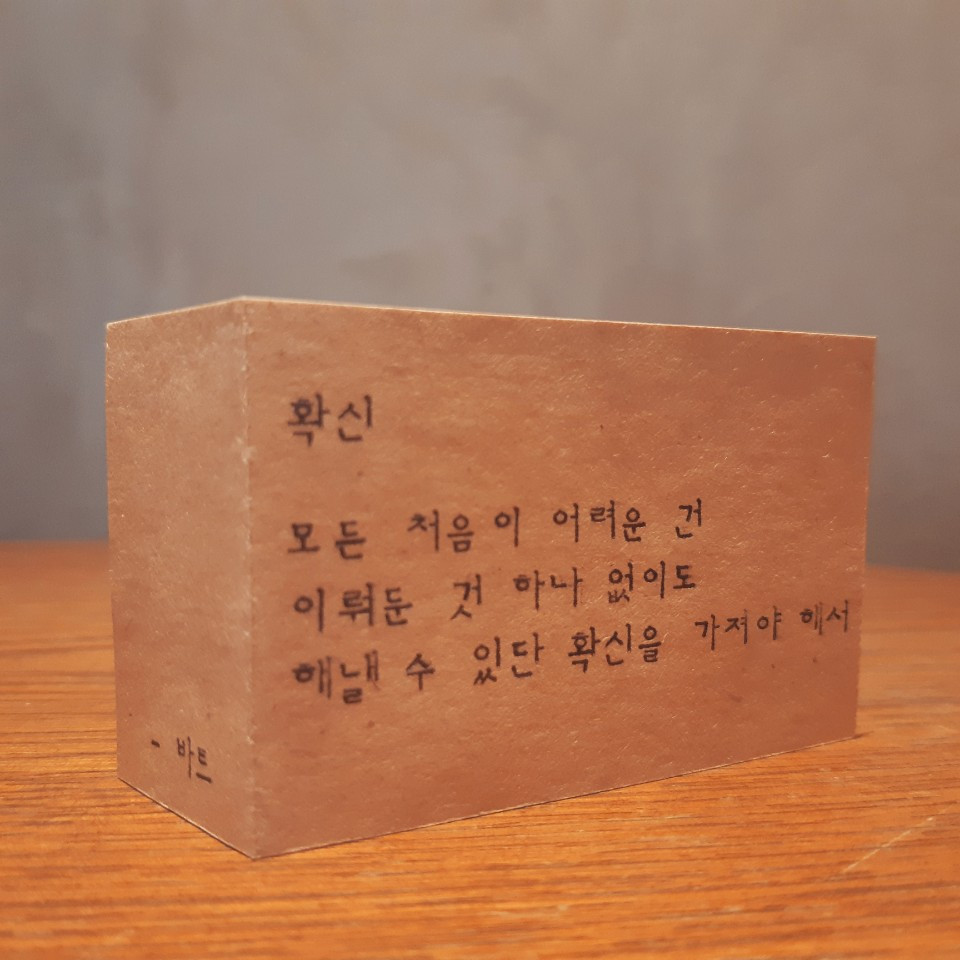 확신
모든 처음이 어려운 건
이뤄둔 것 하나 없이도
해낼 수 있단 확신을 가져야 해서
- 바트